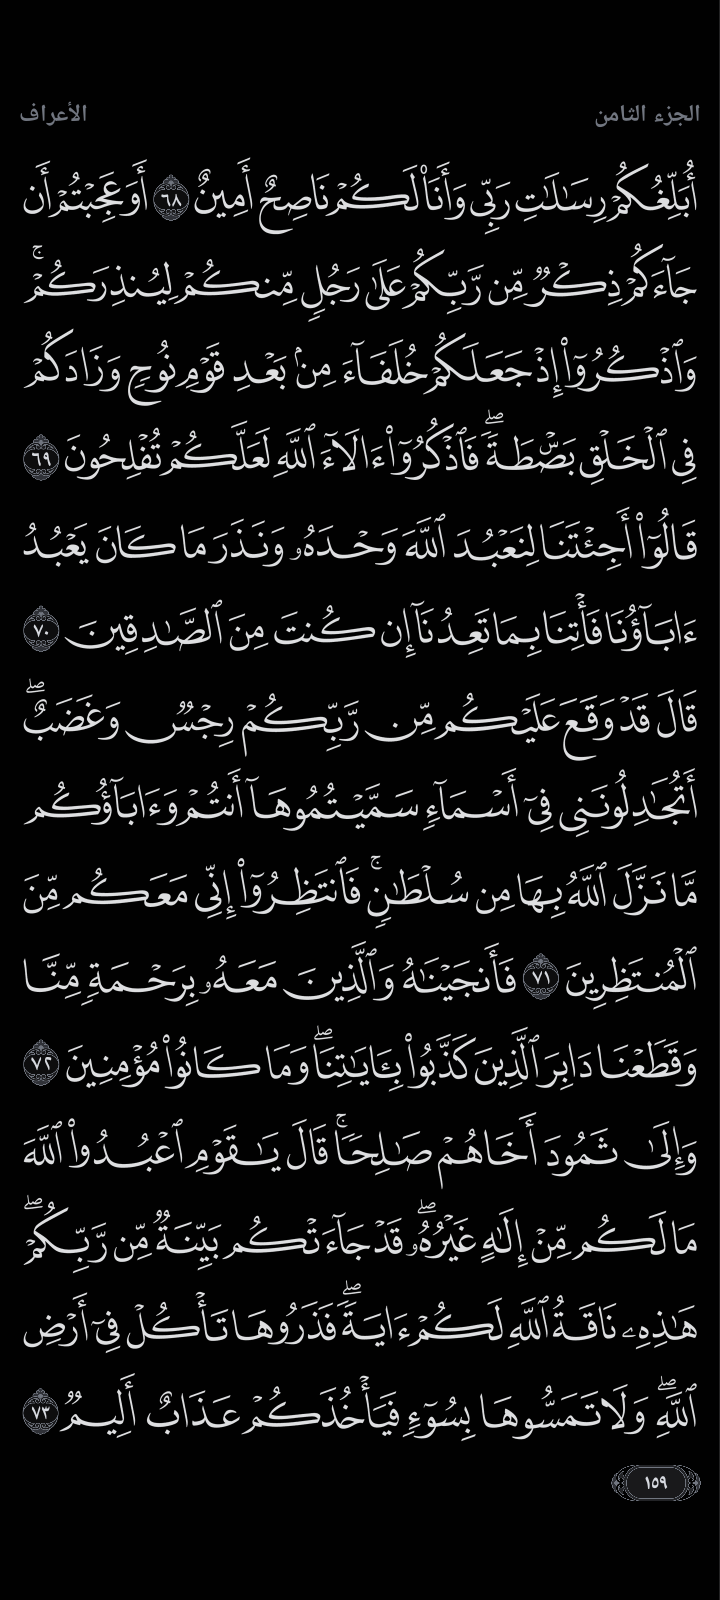 الجزء الثامن
الأعراف
أُبَلِّغُكُمْ رِسَٰلَٰتِ رَبِّى وَأَنَا۠ لَكُمْ نَاصِحٌ أَمِينٌ ٦٨ أَوَعَجِبْتُمْ أَن
جَآءَكُمْ ذِكْرٌ مِّن رَّبِّكُمْ عَلَىٰ رَجُلٍ مِّنكُمْ لِيُنذِرَكُمْ ۚ
وَٱذْكُرُوٓا۟ إِذْ جَعَلَكُمْ خُلَفَآءَ مِنۢ بَعْدِ قَوْمِ نُوحٍ وَزَادَكُمْ
فِى ٱلْخَلْقِ بَصْۜطَةً ۖ فَٱذْكُرُوٓا۟ ءَالَآءَ ٱللَّهِ لَعَلَّكُمْ تُفْلِحُونَ ٦٩
قَالُوٓا۟ أَجِئْتَنَا لِنَعْبُدَ ٱللَّهَ وَحْدَهُۥ وَنَذَرَ مَا كَانَ يَعْبُدُ
ءَابَآؤُنَا فَأْتِنَا بِمَا تَعِدُنَآ إِن كُنتَ مِنَ ٱلصَّٰدِقِينَ ٧٠
قَالَ قَدْ وَقَعَ عَلَيْكُم مِّن رَّبِّكُمْ رِجْسٌ وَغَضَبٌ ۖ
أَتُجَٰدِلُونَنِى فِىٓ أَسْمَآءٍ سَمَّيْتُمُوهَآ أَنتُمْ وَءَابَآؤُكُم
مَّا نَزَّلَ ٱللَّهُ بِهَا مِن سُلْطَٰنٍ ۚ فَٱنتَظِرُوٓا۟ إِنِّى مَعَكُم مِّنَ
ٱلْمُنتَظِرِينَ ٧١ فَأَنجَيْنَٰهُ وَٱلَّذِينَ مَعَهُۥ بِرَحْمَةٍ مِّنَّا
وَقَطَعْنَا دَابِرَ ٱلَّذِينَ كَذَّبُوا۟ بِـَٔايَٰتِنَا ۖ وَمَا كَانُوا۟ مُؤْمِنِينَ ٧٢
وَإِلَىٰ ثَمُودَ أَخَاهُمْ صَٰلِحًا ۚ قَالَ يَٰقَوْمِ ٱعْبُدُوا۟ ٱللَّهَ
مَا لَكُم مِّنْ إِلَٰهٍ غَيْرُهُۥ ۖ قَدْ جَآءَتْكُم بَيِّنَةٌ مِّن رَّبِّكُمْ ۖ
هَٰذِهِۦ نَاقَةُ ٱللَّهِ لَكُمْ ءَايَةً ۖ فَذَرُوهَا تَأْكُلْ فِىٓ أَرْضِ
ٱللَّهِ ۖ وَلَا تَمَسُّوهَا بِسُوٓءٍ فَيَأْخُذَكُمْ عَذَابٌ أَلِيمٌ ٧٣
١٥٩